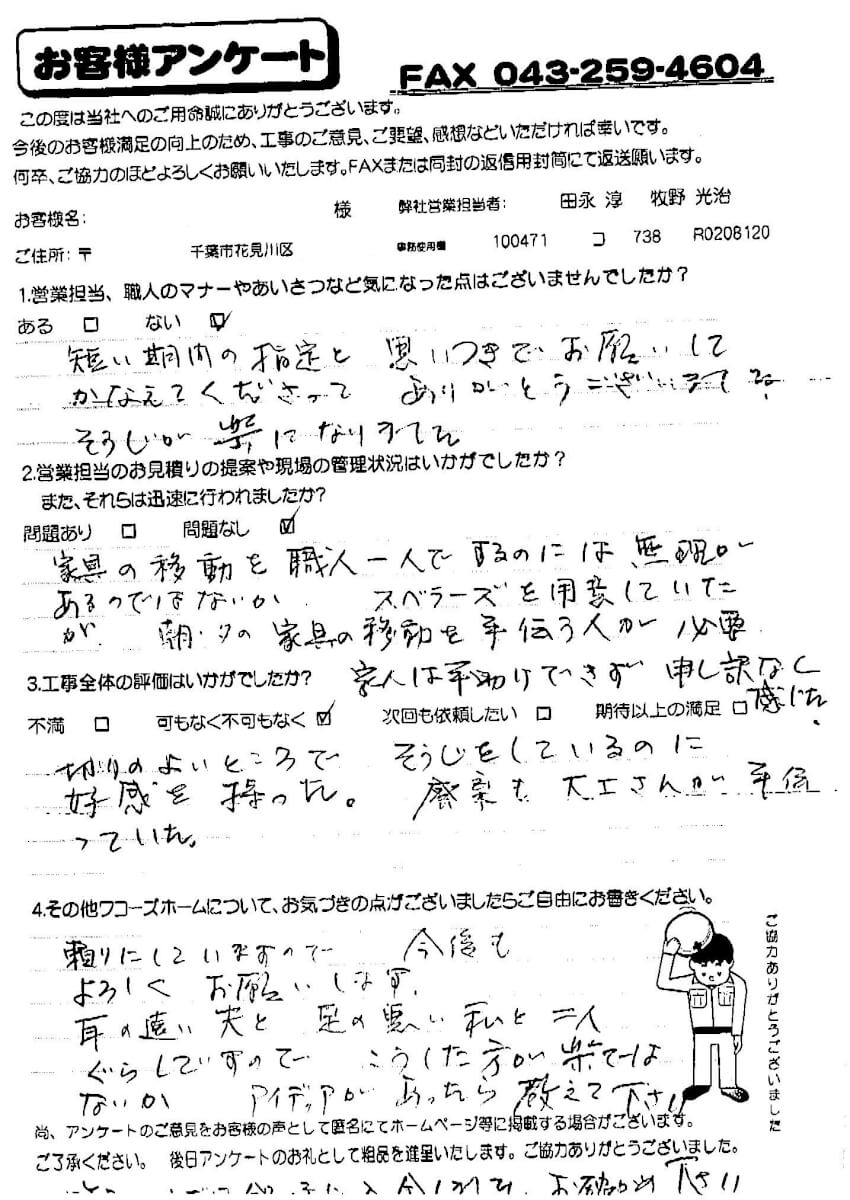 お客様アンケート
FAX 043-259-4604
この度は当社へのご用命誠にありがとうございます。
今後のお客様満足の向上のため、工事のご意見、ご要望、感想などいただければ幸いです。
何卒、ご協力のほどよろしくお願いいたします。FAXまたは同封の返信用封筒にて返送願います。
お客様名: 様 弊社営業担当者: 田永 淳 牧野 光治
ご住所:〒 千葉市花見川区 事務使用欄 100471 コ 738 R0208120
1.営業担当、職人のマナーやあいさつなど気になった点はございませんでしたか?
ある □ ない ☑
短い期内の指定と 思いつきでお願いして
かなえてくださって ありがとうございまして
そうじが楽になりました
2.営業担当のお見積りの提案や現場の管理状況はいかがでしたか?
また、それらは迅速に行われましたか?
問題あり □ 問題なし ☑
家具の移動を職人一人でするのには無理が
あるのではないか スベラーズを用意していた
が 朝・夕の家具の移動を手伝う人が必要
3.工事全体の評価はいかがでしたか? 家人は手助けできず 申し訳なく
感じた。
不満 □ 可もなく不可もなく ☑ 次回も依頼したい □ 期待以上の満足 □
切りのよいところで そうじをしているのに
好感を 操った。 廃棄も 大工さんが 手伝
っていた。
4.その他ワコーズホームについて、お気づきの点がございましたらご自由にお書きください。
頼りにしていますので 今後も
よろしく お願いします。
耳の遠い 夫と 足の悪い 私と 二人
ぐらしですので こうした方が 楽では
ないか アイディアが あったら 教えて下さい
ご協力ありがとうございました
尚、アンケートのご意見をお客様の声として匿名にてホームページ等に掲載する場合がございます。
ご了承ください。 後日アンケートのお礼として粗品を進呈いたします。ご協力ありがとうございました。
下さい